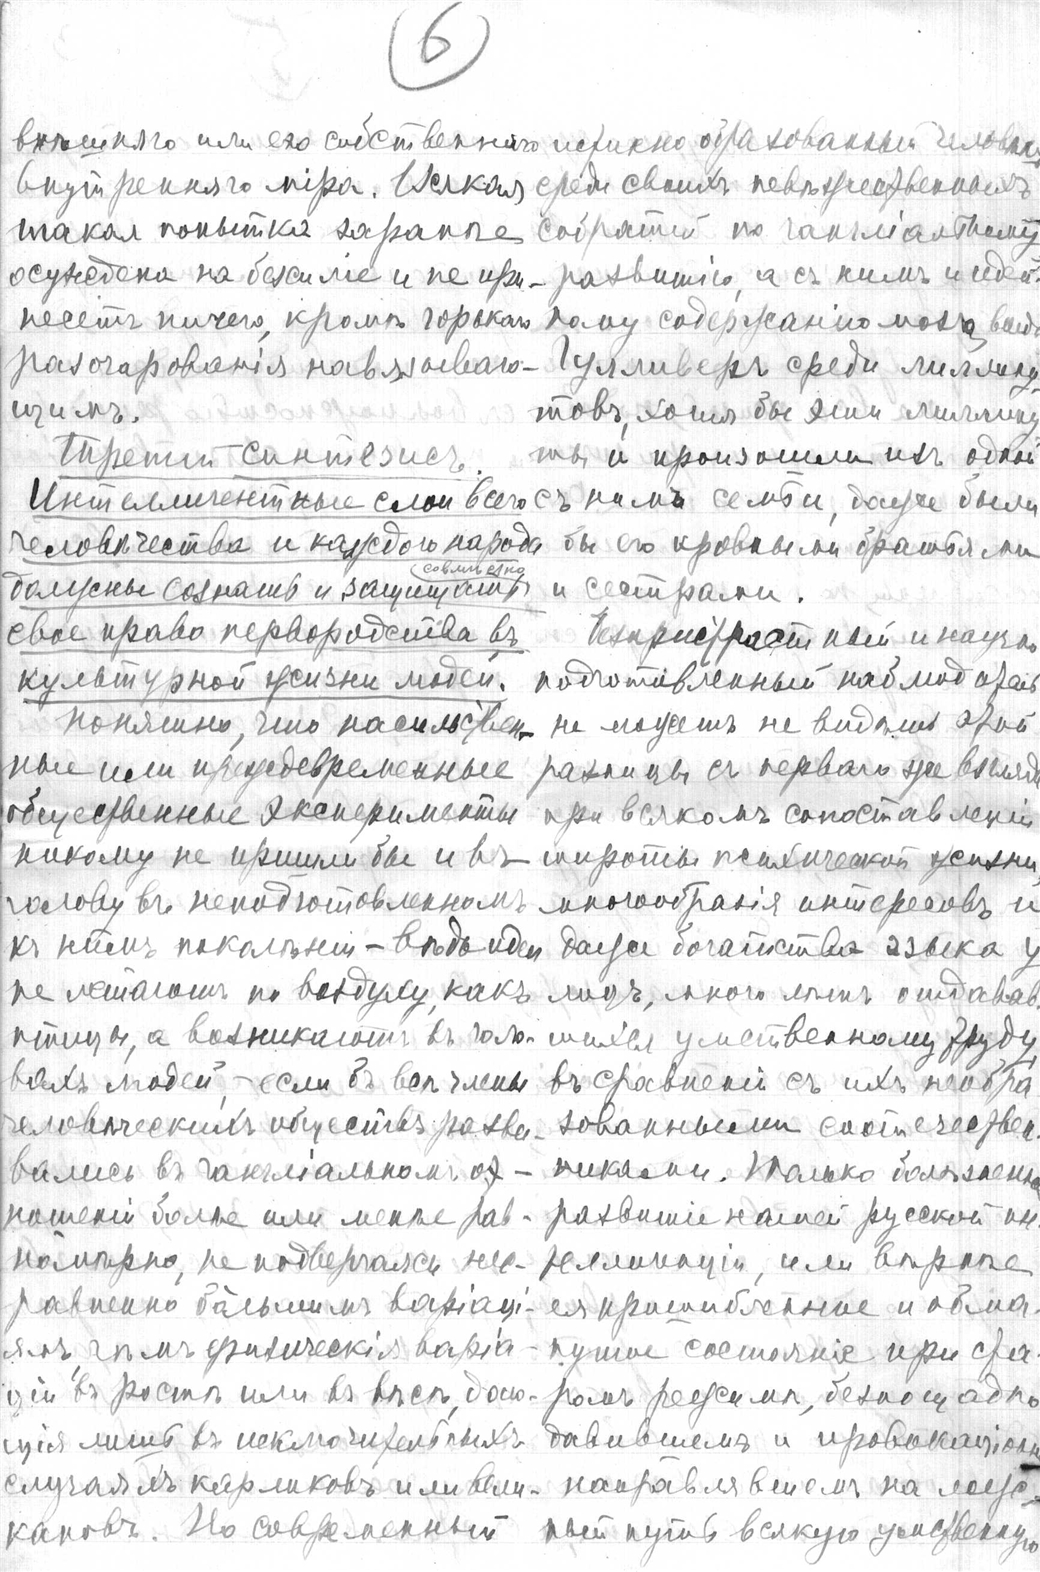 6
внѣшняго или его собственнаго
внутренняго міра. Всякая
такая попытка заранѣе
осуждена на безсиліе и не при-
несетъ ничего, кромѣ горькаго
разочарованія навязываю-
щимъ.
Третій синтезисъ.
Интеллигентные слои всего
человѣчества и каждого народа
совмѣстно
должны сознать и защищать
свое право первородства въ
культурной жизни людей.
Понятно, что насильствен-
ные или преждевременные
общественные эксперименты
никому не пришли бы и въ
голову въ неподготовленномъ
къ нимъ поколѣніи – вѣдь идеи
не летаютъ по воздуху, какъ
птицы, а возникаютъ въ голо-
вахъ людей, – если бъ всѣ члены
человѣческихъ обществъ разви-
вались въ гангліальномъ от-
ношеніи болѣе или менѣе рав-
номѣрно, не подвергаясь нес-
равненно бо́льшимъ варіаці-
ямъ, чѣмъ физическія варіа-
ціи въ ростѣ или въ вѣсѣ, даю-
щія лишь въ исключительныхъ
случаяхъ карликовъ или вели-
кановъ. Но современный
истинно образованный человѣкъ
среди своихъ невѣжественныхъ
собратій по гангліальному
развитію, а съ нимъ и идей-
ному содержанію мозга,
Гулливеръ среди лиллипу
товъ, хотя бы эти лиллипу
ты и произошли изъ одной
съ нимъ семьи, даже были
бы его кровными братьями
и сестрами.
Безпристрастный и научно
подготовленный наблюдатель
не можетъ не видѣть этой
разницы съ перваго же взгляда
при всякомъ сопоставленіи
широты психической жизни,
многообразія интересовъ и
даже богатства языка у
лицъ, много лѣтъ отдавав-
шихся умственному труду
въ сравненіи съ ихъ необра
зованными соотечествен-
никами. Только болѣзненное
развитіе нашей русской ин-
теллигенціи, или вѣрнѣе
ея пришибленное и обма-
нутое состояніе при ста-
ромъ режимѣ, безпощадно
давившемъ и провокаціонно
направлявшемъ на лож-
ный путь всякую умственную